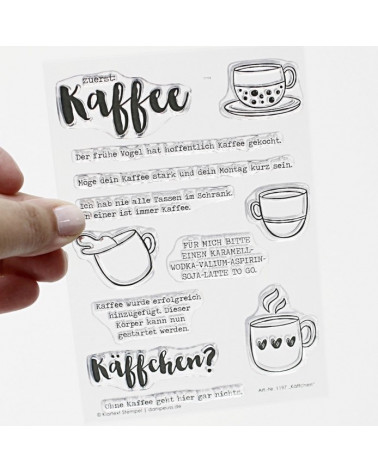 zuerst:
Kaffee
Der frühe Vogel hat hoffentlich Kaffee gekocht.
Möge dein Kaffee stark und dein Montag kurz sein.
Ich hab nie alle Tassen im Schrank.
einer ist immer Kaffee.
FÜR MICH BITTE
EINEN KARAMELL-
WODKA-VALIUM-ASPIRIN-
SOJA-LATTE TO GO.
Kaffee wurde erfolgreich
hinzugefügt. Dieser
Körper kann nun
gestartet werden.
Käffchen?
Ohne Kaffee geht hier gar nichts.
© Klartext Stempel | danipeuss.de